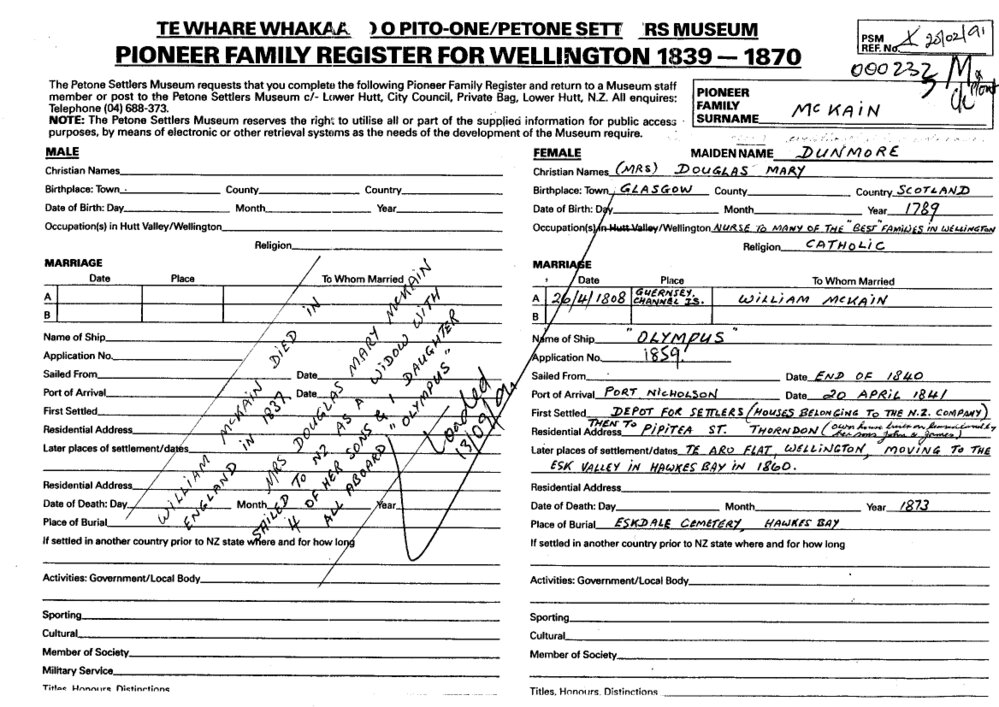 TE WHARE WHAKAA O PITO-ONE/PETONE SETT RS MUSEUM
PIONEER FAMILY REGISTER FOR WELLINGTON 1839 — 1870
PSM REF. No. X 20/02/91
000232
The Petone Settlers Museum requests that you complete the following Pioneer Family Register and return to a Museum staff
member or post to the Petone Settlers Museum c/- Lower Hutt, City Council, Private Bag, Lower Hutt, N.Z. All enquires:
Telephone (04) 688-373.
NOTE: The Petone Settlers Museum reserves the right to utilise all or part of the supplied information for public access
purposes, by means of electronic or other retrieval systems as the needs of the development of the Museum require.
PIONEER
FAMILY
SURNAME McKAIN
MALE
Christian Names
Birthplace: Town County Country
Date of Birth: Day Month Year
Occupation(s) in Hutt Valley/Wellington
Religion
MARRIAGE
Date Place To Whom Married
A
B
Name of Ship
Application No.
Sailed From Date
Port of Arrival Date
First Settled
Residential Address
Later places of settlement/dates
Residential Address
Date of Death: Day Month Year
Place of Burial
If settled in another country prior to NZ state where and for how long
Activities: Government/Local Body
Sporting
Cultural
Member of Society
Military Service
Titles, Honours, Distinctions
WILLIAM McKAIN DIED IN
ENGLAND IN 1837.
MRS DOUGLAS MARY McKAIN
SAILED TO NZ AS A WIDOW WITH
4 OF HER SONS & 1 DAUGHTER
ALL ABOARD "OLYMPUS"
Loaded
13/09/
FEMALE MAIDEN NAME DUNMORE
Christian Names (MRS) DOUGLAS MARY
Birthplace: Town GLASGOW County Country SCOTLAND
Date of Birth: Day Month Year 1789
Occupation(s) in Hutt Valley/Wellington NURSE TO MANY OF THE "BEST" FAMILIES IN WELLINGTON
Religion CATHOLIC
MARRIAGE
Date Place To Whom Married
A 26/4/1808 GUERNSEY, CHANNEL IS. WILLIAM McKAIN
B
Name of Ship "OLYMPUS"
Application No. 1859.
Sailed From Date END OF 1840
Port of Arrival PORT NICHOLSON Date 20 APRIL 1841
First Settled DEPOT FOR SETTLERS (HOUSES BELONGING TO THE N.Z. COMPANY)
Residential Address THEN TO PIPITEA ST. THORNDON (own house built on by her sons John & James)
Later places of settlement/dates TE ARO FLAT, WELLINGTON, MOVING TO THE
ESK VALLEY IN HAWKES BAY IN 1860.
Residential Address
Date of Death: Day Month Year 1873
Place of Burial ESKDALE CEMETERY, HAWKES BAY
If settled in another country prior to NZ state where and for how long
Activities: Government/Local Body
Sporting
Cultural
Member of Society
Titles, Honours, Distinctions